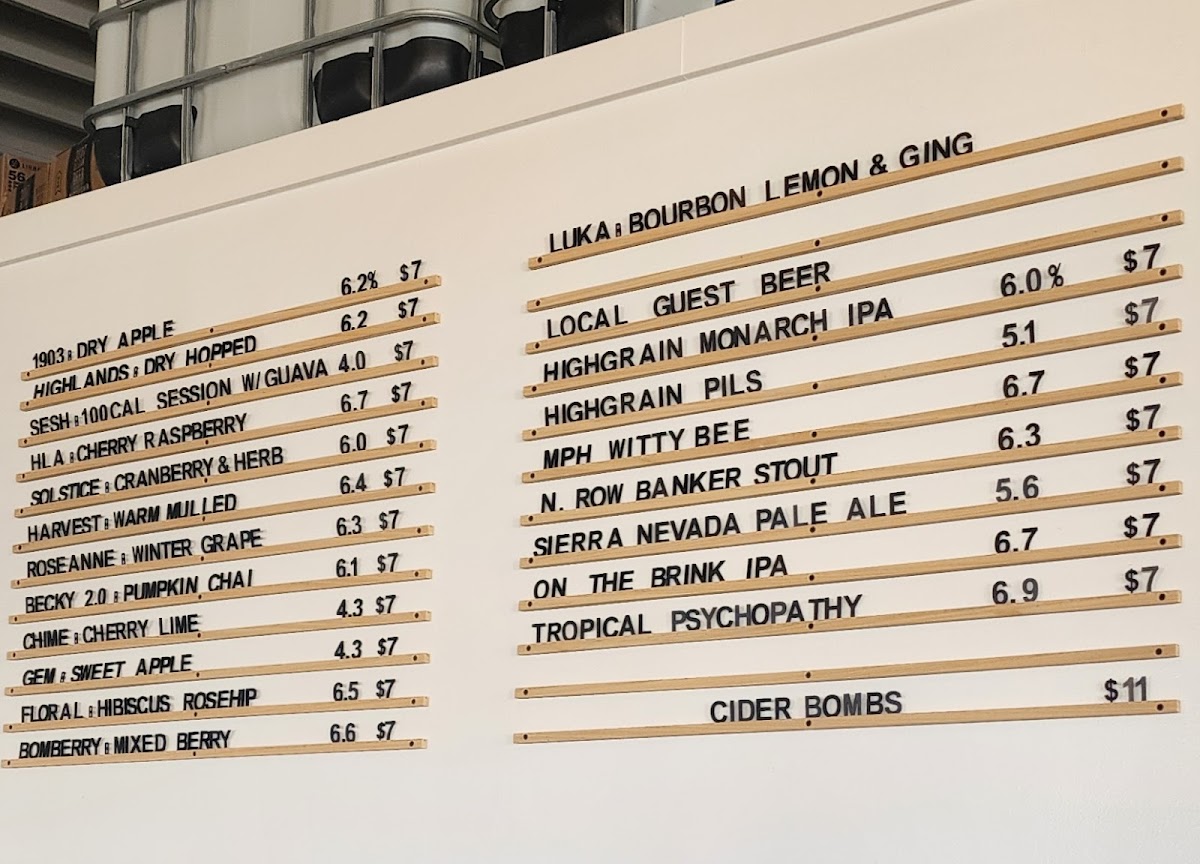 1903 : DRY APPLE 6.2% $7
HIGHLANDS : DRY HOPPED 6.2 $7
SESH : 100CAL SESSION W/ GUAVA 4.0 $7
HLA : CHERRY RASPBERRY 6.7 $7
SOLSTICE : CRANBERRY & HERB 6.0 $7
HARVEST : WARM MULLED 6.4 $7
ROSEANNE : WINTER GRAPE 6.3 $7
BECKY 2.0 : PUMPKIN CHAI 6.1 $7
CHIME : CHERRY LIME 4.3 $7
GEM : SWEET APPLE 4.3 $7
FLORAL : HIBISCUS ROSEHIP 6.5 $7
BOMBERRY : MIXED BERRY 6.6 $7
LUKA : BOURBON LEMON & GING
LOCAL GUEST BEER
HIGHGRAIN MONARCH IPA 6.0% $7
HIGHGRAIN PILS 5.1 $7
MPH WITTY BEE 6.7 $7
N. ROW BANKER STOUT 6.3 $7
SIERRA NEVADA PALE ALE 5.6 $7
ON THE BRINK IPA 6.7 $7
TROPICAL PSYCHOPATHY 6.9 $7
CIDER BOMBS $11
56